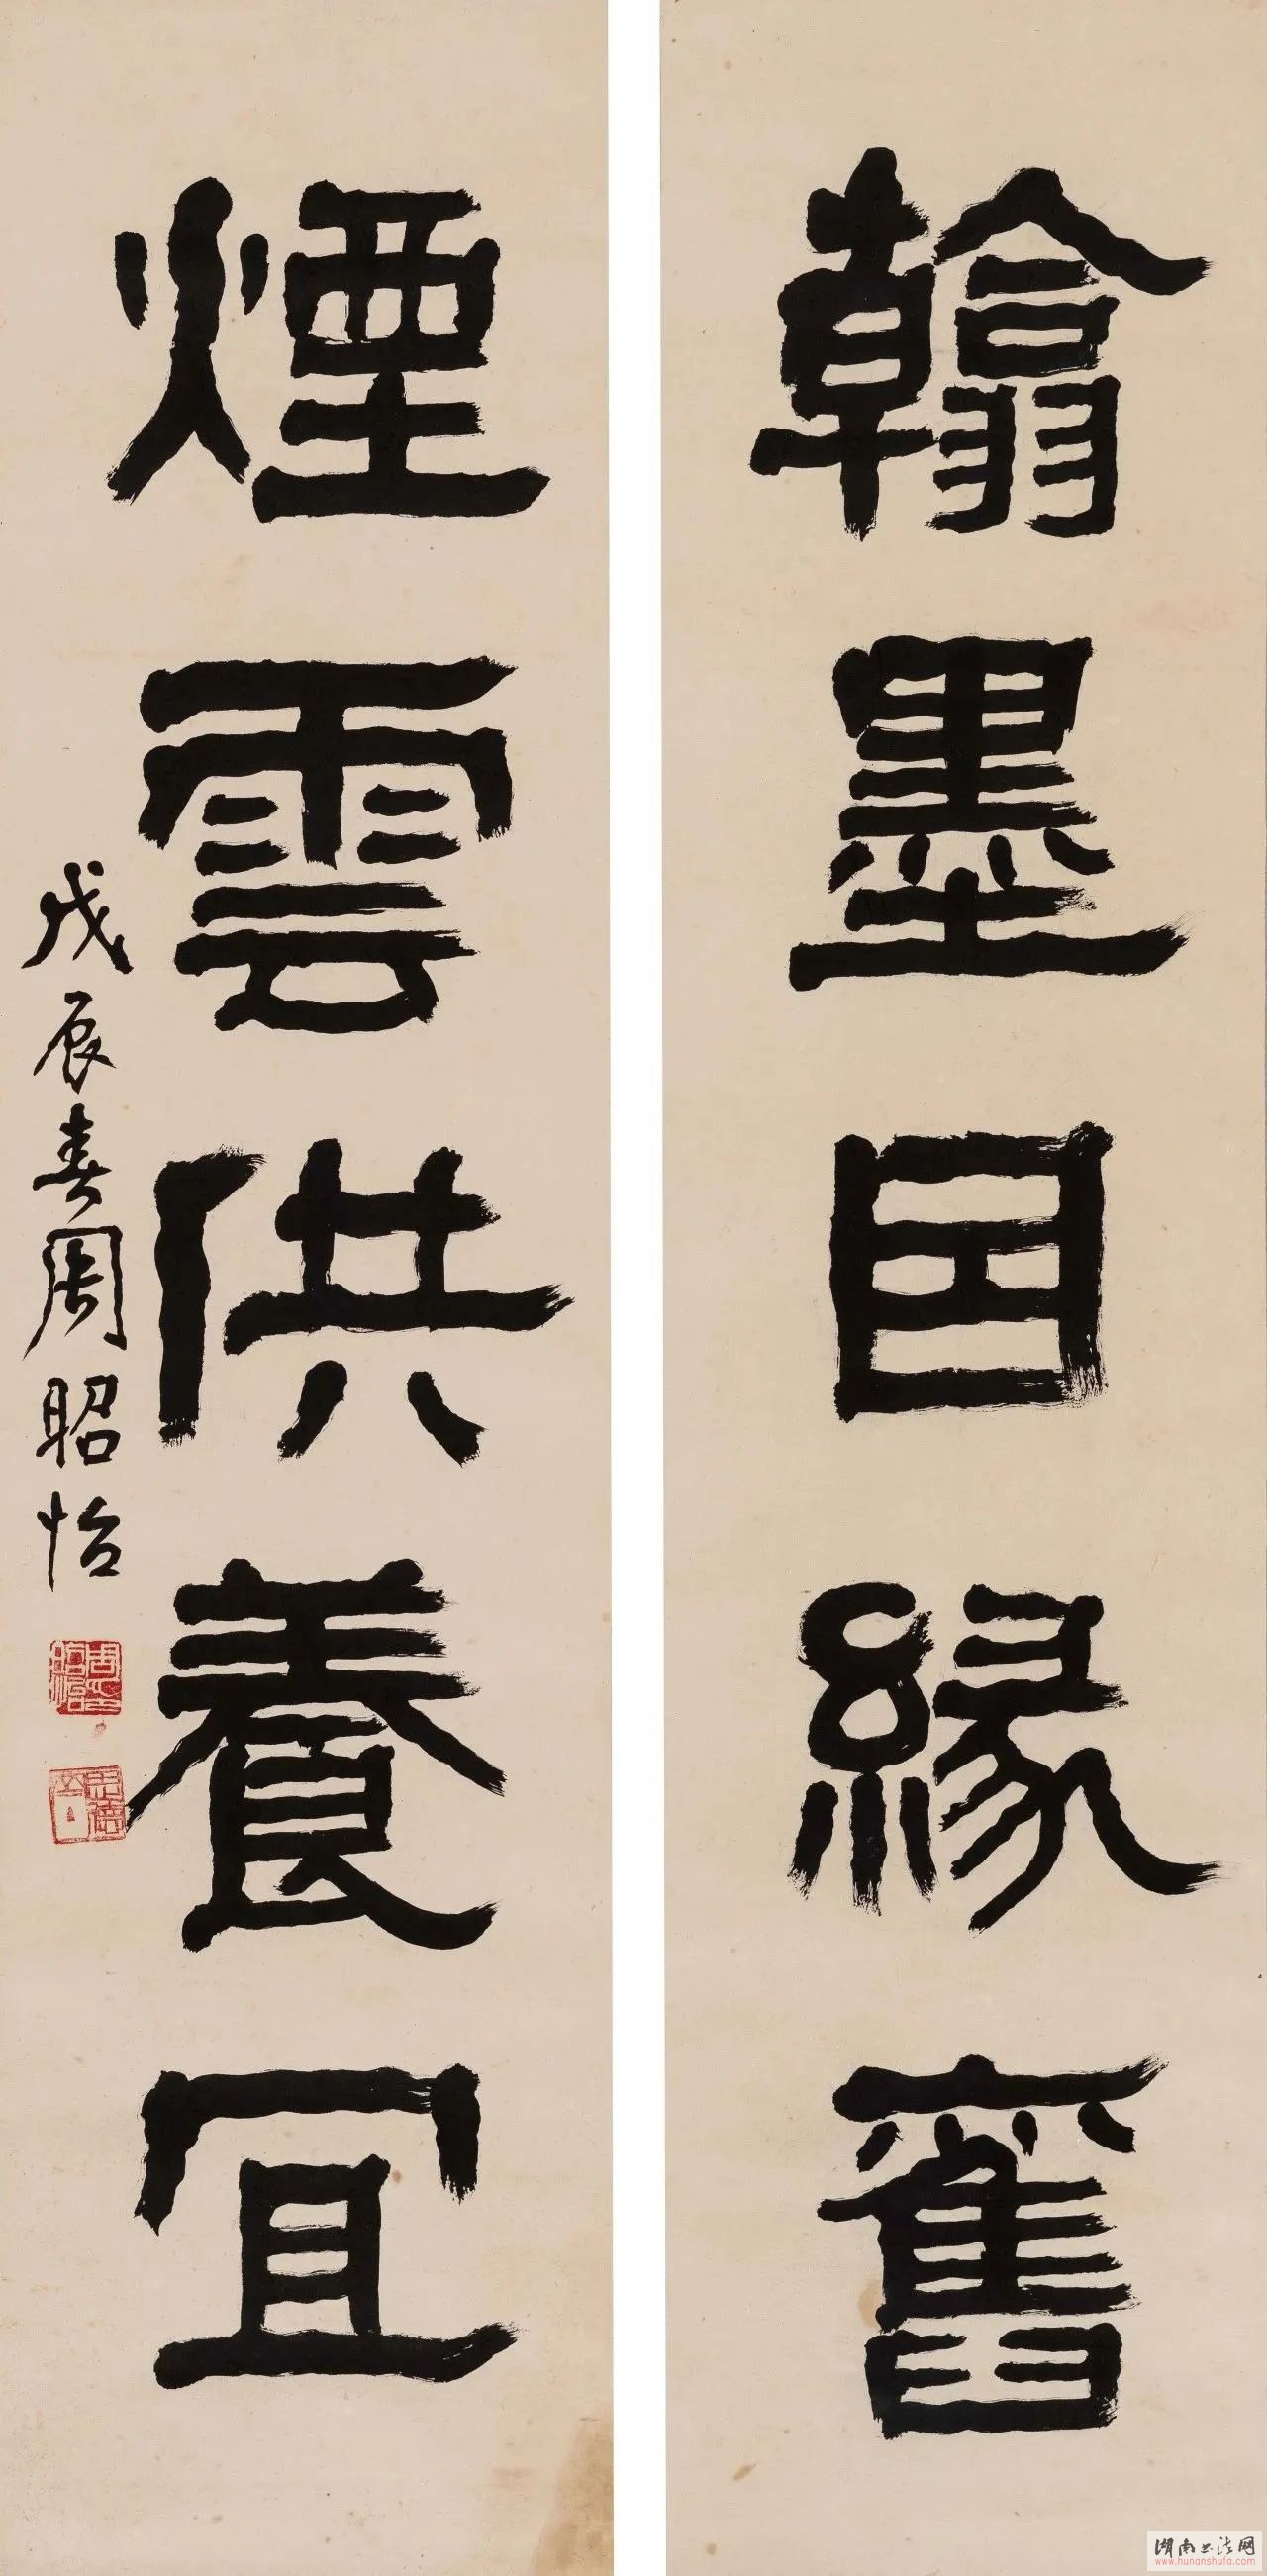 翰墨因緣舊
煙雲供養宜
戊辰春周昭怡
湖南书法网
www.hunanshufa.com